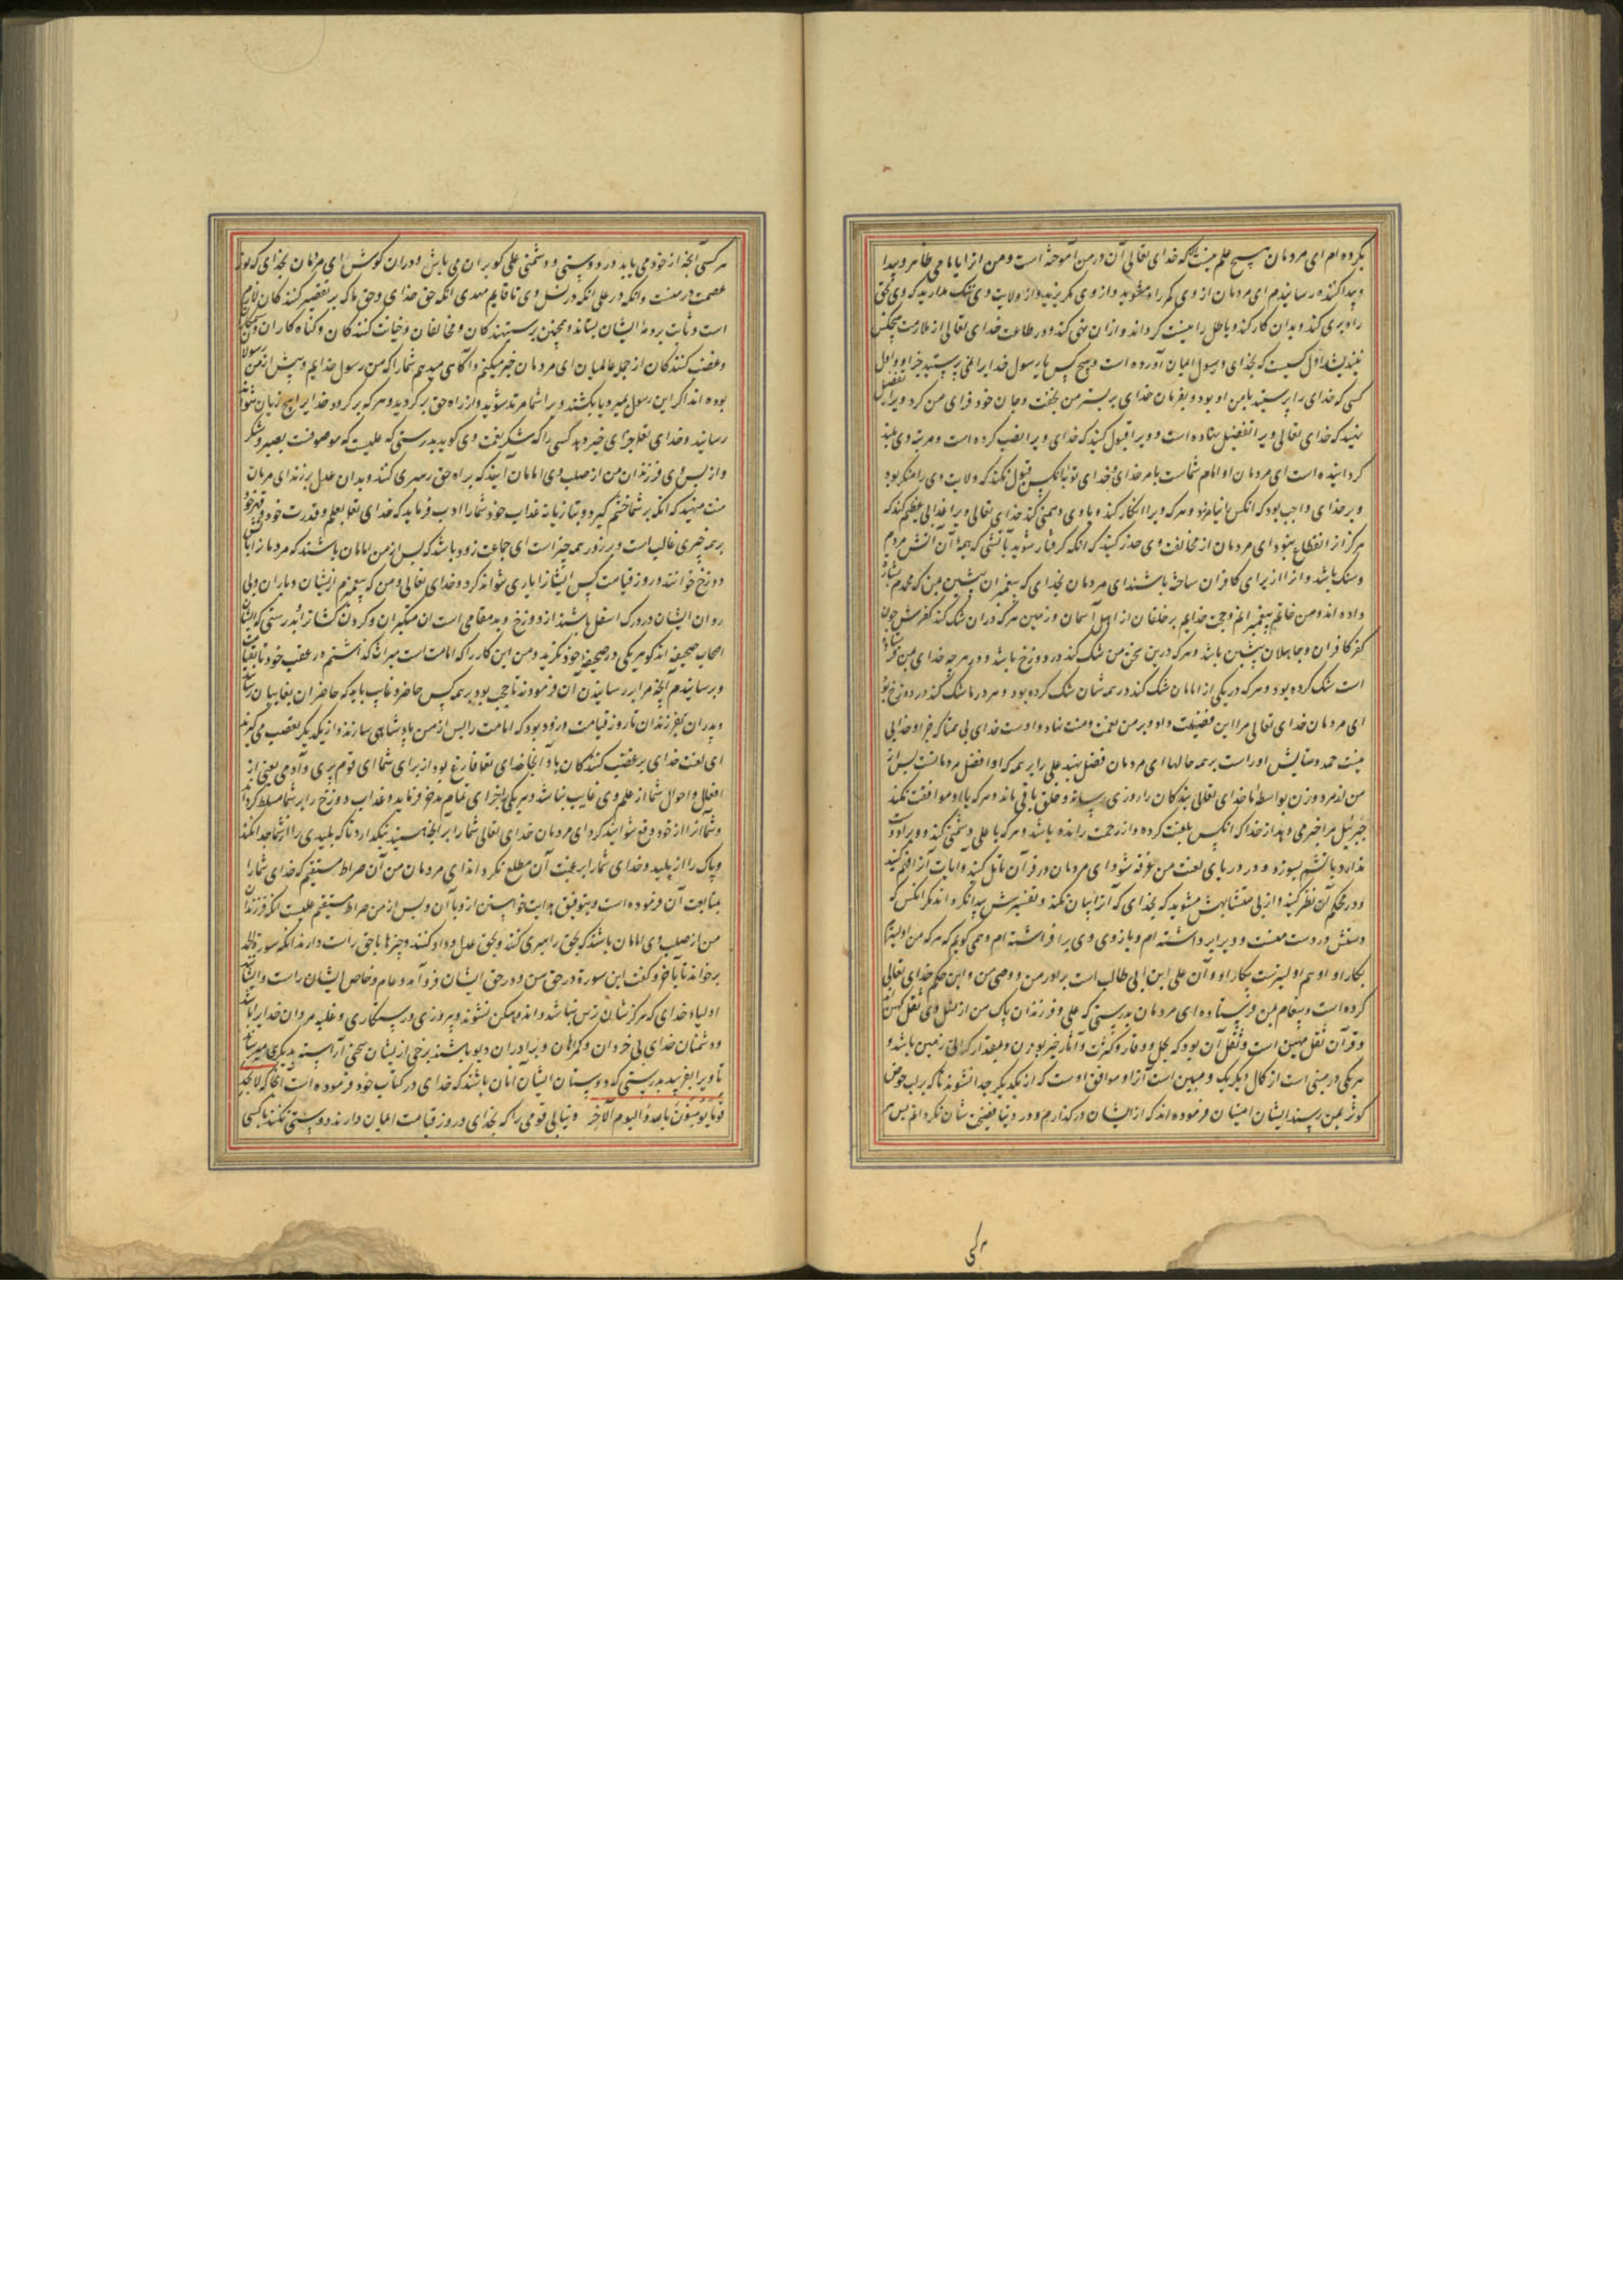 بکرده‌ام ای مردمان هیچ علم نیست که خدای تعالی آن در من آموخته است و من از ایامامی ظاهر و پیدا
و پیدا کننده رسانیدم ای مردمان از وی کم راه مشوید و از وی مگریزید و از ولایت وی ننک مدارید که وی بحق
راه بری کند و بدان کار کند و باطل را نیست کرداند و ازان نهی کند و در طاعت خدای تعالی از ملازمت هیچکس
نیندیشد اول کسیست که بخدای و رسول ایمان آورده است و هیچ کس با رسول خدایرا نمی پرستید جز او و اول
کسی که خدای را پرستید با من او بود و بفرمان خدای بر بستر من بخفت و جان خود فدای من کرد ویرا تفضیل
نهید که خدای تعالی ویرا تفضیل نهاده است و ویرا قبول کنید که خدای ویرا نصب کرده است و مرتبه وی بلند
کردانیده است ای مردمان او امام شماست بامر خدای و خدای توبه آنکس قبول نکند که ولایت وی را منکر بود
و بر خدای واجب بود که انکس را نیامرزد و هر که ویرا انکار کند و با وی دشمنی کند خدای تعالی ویرا عذابی عظیم کند که
هرکز از انقطاع نبود ای مردمان از مخالفت وی حذر کنید که انکه کرفتار شوید بآتشی که همه آن آتش مردم
و سنک باشد و انرا از برای کافران ساخته باشند ای مردمان بخدای که پیغمبران پیشین بمن که محمدم بشارة
داده اند و من خاتم پیغمبرانم و حجت خدایم بر خلقان از اهل آسمان و زمین هر که دران شک کند کفرش چون
کفر کافران و جاهلان پیشین باشد و هر که درین سخن من شک کند در دوزخ باشد و در هر چه خدای بمن فرستاده
است شک کرده بود و هر که در یکی از امامان شک کند در همه شان شک کرده بود و هر در ما شک کند در دوزخ بود
ای مردمان خدای تعالی مرا این فضیلت داد و بر من نعمت و منت نهاد و اوست خدای بی همتا که جز او خدایی
نیست حمد و ستایش او راست بر همه حالها ای مردمان فضل نهید علی را بر همه که او افضل مردمانست پس از
من از مرد و زن بواسطه ما خدای تعالی بندکان را روزی رساند و خلق باقی ماند و هر که با او موافقت نکند
جبرئیل مرا خبر می دهد از خدا که انکس بلعنت کرده و از رحمت رانده باشد و هر که با علی دشمنی کند و ویرا دوست
ندارد باتشم بسوزد و در دریای لعنت من غرقه شود ای مردمان در قرآن تامل کنید و ایات آنرا فهم کنید
و در محکم آن نظر کنید و از پی متشابهش مشوید که بخدای که آنرا بیان نکند و تفسیرش پیدا نکرداند مکر انکس که
دستش در دست منست و ویرا برداشته ام و بازوی وی برافراشته ام و می کویم که هر که من اولیترم
بکار او او هم اولیترست بکار او و آن علی ابن ابی طالب است برادر من و وصی من و این حکم خدای تعالی
کرده است و پیغام بمن فرستاده ای مردمان بدرستی که علی و فرزندان پاک من از نسل وی ثقل کهین
و قرآن ثقل مهین است و ثقل آن بود که محل و وقار و کثرت و آثار خیر بودن و مقدار کرانی زمین باشد و
هر یکی در معنی است از کمال دیکریک و مبین است آنرا و موافق اوست که از یکدیکر جدا نشوند تا که بر لب حوض
کوثر بمن رسند ایشان امینان فرموده اند که از ایشان در کذارم و در دنیا فضیحتشان نکرداند پس هر
هر کسی آنچه از خود می یابد در دوستی و دشمنی علی کو بران می باش و دران کوش ای مردمان بخدای که نور
عصمت در منست و انکه در علی انکه در نسل وی تا قایم مهدی انکه حق خدای و حق ما که بر تقصیر کنندکان لازم
است و ثابت بر وی ایشان بستاند و همچنین بر ستیهندکان و مخالفان و خیانت کنندکان و کناه کاران و ستمکاران
و غضب کنندکان از جمله عالمیان ای مردمان خبر میکنم و آکاهی میدهم شمارا که من رسول خدایم و پیش از من رسولان
بوده اند اکر این رسول بمیرد یا بکشند ویرا شما مرتد شوید و از راه حق برکردید و هر که برکردد خدایرا هیچ زیان نتواند
رسانید و خدای تعالی جزای خیر دهد کسی را که شکر نعمت وی کوید بدرستی که علیست که موصوفست بصبر و شکر
و از پس وی فرزندان من از صلب وی امامان آیند که براه حق رهبری کنند و بدان عدل برزند ای مردمان
منت منهید که انکه بر شما خشم کیرد و بتازیانه عذاب خود شمارا ادب فرماید که خدای تعالی بعلم و قدرت خود و قهر خود
بر همه چیزی غالب است و بر زور همه چیز است ای جماعت زود باشد که پس از من امامان باشند که مردمانرا باتش
دوزخ خوانند و روز قیامت کس ایشانرا یاری نتواند کرد و خدای تعالی و من که پیغمبرم از ایشان و یاران و پی
روان ایشان در درک اسفل باشند از دوزخ و بد مقامی است ان متکبران و کردن کشانرا بدرستی که ایشان
اصحاب صحیفه اند کو هر یکی در صحیفه خود نکرید و من این کار را که امامت است میراث کذاشتم در عقب خود تا بقیامت
و برسانیدم آنچه مرا برسانیدن آن فرمودند تا حجت بود بر همه کس حاضر و غایب باید که حاضران بغایبان رسانند
و پدران بفرزندان تا روز قیامت و زود بود که امامت را پس از من پادشاهی سازند و از یکدیکر بغصب می کیرند
ای لعنت خدای بر غصب کنندکان باد آنجا خدای تعالی فارغ بود از برای شما ای قوم پری و آدمی یعنی از
افعال و احوال شما از علم وی غایب نباشد و هر یکی را جزای تمام بدهد و فرماید و عذاب دوزخ را بر شما مسلط کرداند
و شما آنرا از خود دفع نتوانید کرد ای مردمان خدای تعالی شما را بر انچه هستید نیکدارد تا که پلیدی را از شما جدا نکند
و پاک را از پلید و خدای شمارا بر غیب آن مطلع نکرداند ای مردمان من آن صراط مستقیم که خدای شمارا
بمتابعت آن فرموده است و بتوفیق هدایت خواستن از و با آن و پس از من صراط مستقیم علیست انکه فرزندان
من از صلب وی امامان باشند که بحق راهبری کنند و بحق عدل و داد کنند و چیزها با حق راست دارند انکه سورة الحمد
برخواند تا بآخر و کفت این سورة در حق من و در حق ایشان فرو آمد و عام و خاص ایشان راست و ایشانند
اولیاء خدای که هرکزشان ترس نباشد و اندوهکن نشوند و پیروزی و رستکاری و غلبه مردان خدایرا باشد
و دشمنان خدای بی خردان و کمراهان و برادران دیو باشند برخی از یشان سخن آراسته بدیکری میرسانند
تا ویرا بفریبد بدرستی که دوستان ایشان آنان باشند که خدای در کتاب خود فرموده است آنجا که لا تجد
قوما یؤمنون بالله و الیوم الآخر و نیابی قومی را که بخدای و روز قیامت ایمان دارند دوستی نکنند با کسی